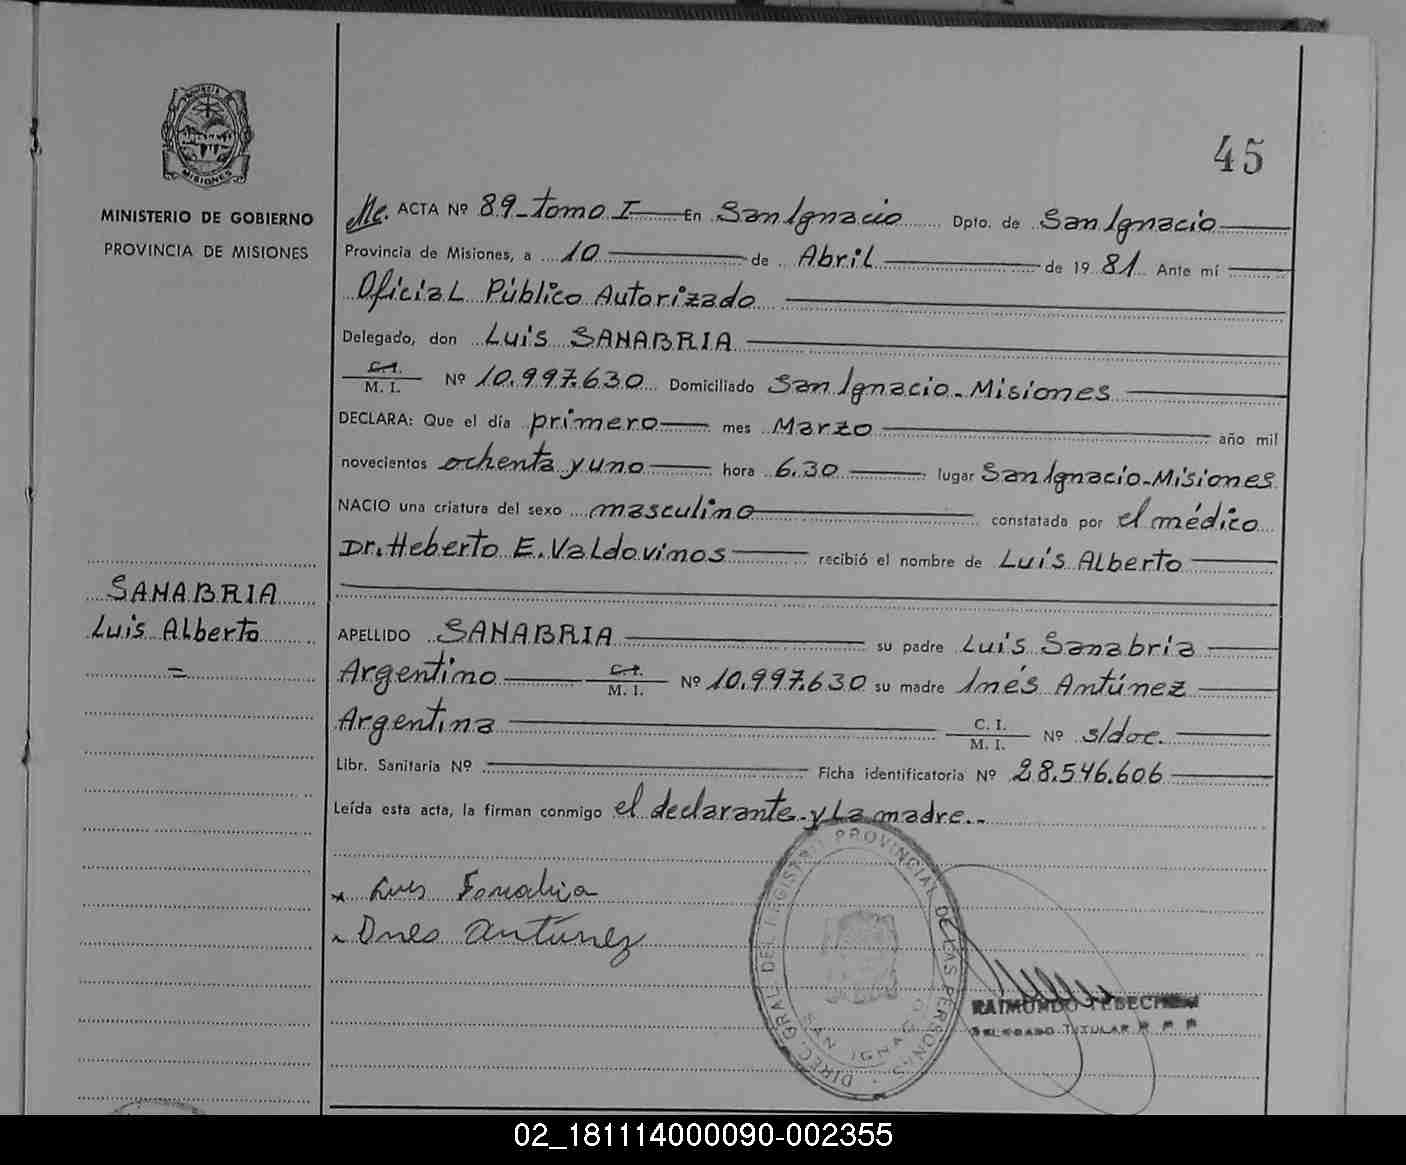 45
PROVINCIA DE
MISIONES
MINISTERIO DE GOBIERNO
PROVINCIA DE MISIONES
SANABRIA
Luis Alberto
=
ACTA Nº 89 - tomo I En San Ignacio Dpto. de San Ignacio
Provincia de Misiones, a 10 de Abril de 1981 Ante mí
Oficial Público Autorizado
Delegado, don Luis SANABRIA
C.I.
M. I. Nº 10.997.630 Domiciliado San Ignacio - Misiones
DECLARA: Que el día primero mes Marzo año mil
novecientos ochenta y uno hora 6.30 lugar San Ignacio - Misiones
NACIO una criatura del sexo masculino constatada por el médico
Dr. Heberto E. Valdovinos recibió el nombre de Luis Alberto
APELLIDO SANABRIA su padre Luis Sanabria
Argentino C.I. M. I. Nº 10.997.630 su madre Inés Antúnez
Argentina C. I. M. I. Nº s/doc.
Libr. Sanitaria Nº Ficha identificatoria Nº 28.546.606
Leída esta acta, la firman conmigo el declarante y La madre.-
Luis Sanabria
Ines Antúnez
DIREC. GRAL DEL REGISTRO PROVINCIAL DE LAS PERSONAS
SAN IGNACIO
RAIMUNDO
DELEGADO TITULAR
02_181114000090-002355